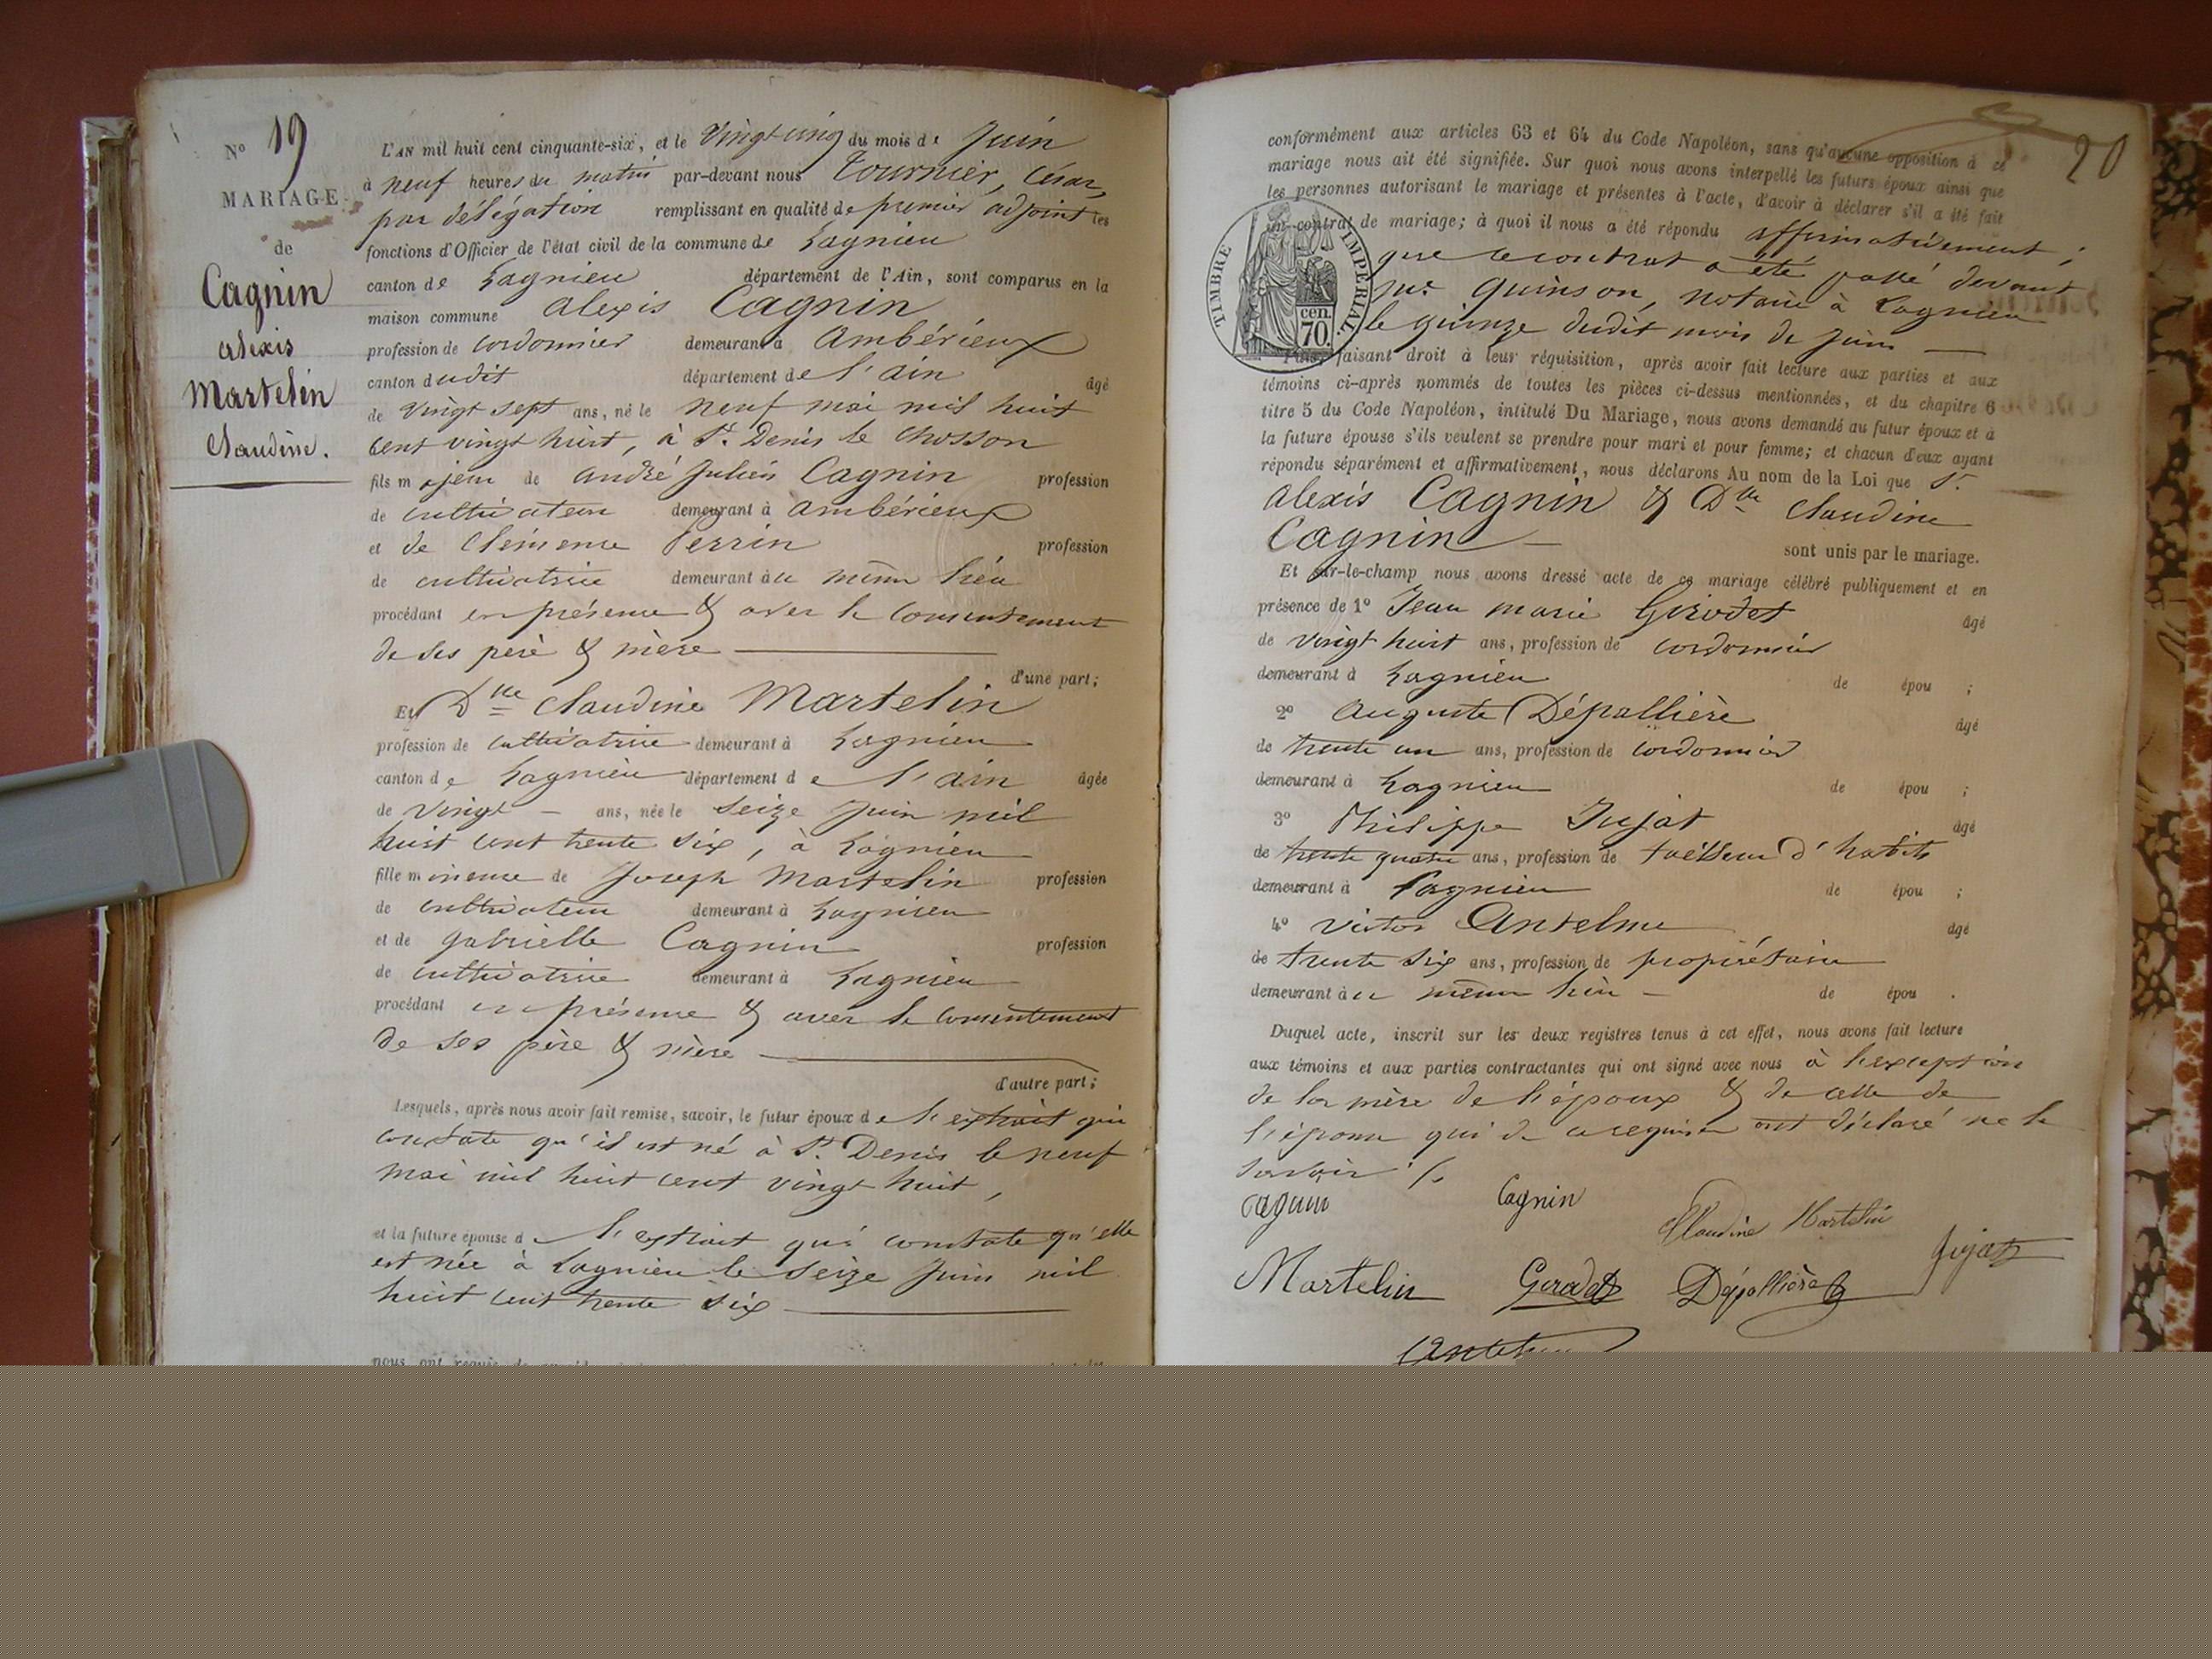 N° 19
MARIAGE
de
Cagnin
alexis
Martelin
Claudine.
L'AN mil huit cent cinquante-six, et le vingt cinq du mois de Juin
à neuf heures du matin par-devant nous Tournier, César,
par délégation remplissant en qualité de premier adjoint les
fonctions d'Officier de l'état civil de la commune de Lagnieu
canton de Lagnieu département de l'Ain, sont comparus en la
maison commune alexis Cagnin
profession de cordonnier demeurant à Ambérieux
canton dudit département de l'ain âgé
de vingt sept ans, né le neuf mai mil huit
cent vingt huit, à St. Denis le Chosson
fils majeur de andré Julien Cagnin profession
de cultivateur demeurant à ambérieux
et de Clémence Perrin profession
de cultivatrice demeurant au même lieu
procédant en présence & avec le consentement
de ses père & mère
d'une part;
Et Dlle Claudine Martelin
profession de cultivatrice demeurant à Lagnieu
canton de Lagnieu département de l'ain âgée
de vingt ans, née le seize Juin mil
huit cent trente six, à Lagnieu
fille mineure de Joseph Martelin profession
de cultivateur demeurant à Lagnieu
et de gabrielle Cagnin profession
de cultivatrice demeurant à Lagnieu
procédant en présence & avec le consentement
de ses père & mère
d'autre part;
Lesquels, après nous avoir fait remise, savoir, le futur époux de l'extrait qui
constate qu'il est né à St. Denis le neuf
mai mil huit cent vingt huit,
et la future épouse de l'extrait qui constate qu'elle
est née à Lagnieu le seize Juin mil
huit cent trente six
20
conformément aux articles 63 et 64 du Code Napoléon, sans qu'aucune opposition à ce
mariage nous ait été signifiée. Sur quoi nous avons interpellé les futurs époux ainsi que
les personnes autorisant le mariage et présentes à l'acte, d'avoir à déclarer s'il a été fait
un contrat de mariage; à quoi il nous a été répondu affirmativement;
que le contrat a été passé devant
Me Quinson, notaire à Lagnieu
le quinze dudit mois de Juin
TIMBRE IMPÉRIAL.
70. cen.
faisant droit à leur réquisition, après avoir fait lecture aux parties et aux
témoins ci-après nommés de toutes les pièces ci-dessus mentionnées, et du chapitre 6
titre 5 du Code Napoléon, intitulé Du Mariage, nous avons demandé au futur époux et à
la future épouse s'ils veulent se prendre pour mari et pour femme; et chacun d'eux ayant
répondu séparément et affirmativement, nous déclarons Au nom de la Loi que Sr.
alexis Cagnin & Dlle Claudine
Cagnin sont unis par le mariage.
Et sur-le-champ nous avons dressé acte de ce mariage célébré publiquement et en
présence de 1° Jean marie Girodet âgé
de vingt huit ans, profession de cordonnier
demeurant à Lagnieu de épou ;
2° Auguste Dépallière âgé
de trente un ans, profession de cordonnier
demeurant à Lagnieu de épou ;
3° Philippe Jujat âgé
de trente quatre ans, profession de tailleur d'habits
demeurant à Lagnieu de épou ;
4° victor Antelme âgé
de trente six ans, profession de propriétaire
demeurant au même lieu de épou .
Duquel acte, inscrit sur les deux registres tenus à cet effet, nous avons fait lecture
aux témoins et aux parties contractantes qui ont signé avec nous à l'exception
de la mère de l'époux & de celle de
l'épouse qui de ce requises ont déclaré ne le
savoir
Cagnin Cagnin Claudine Martelin
Martelin Girodet Dépallière Jujat
Antelme